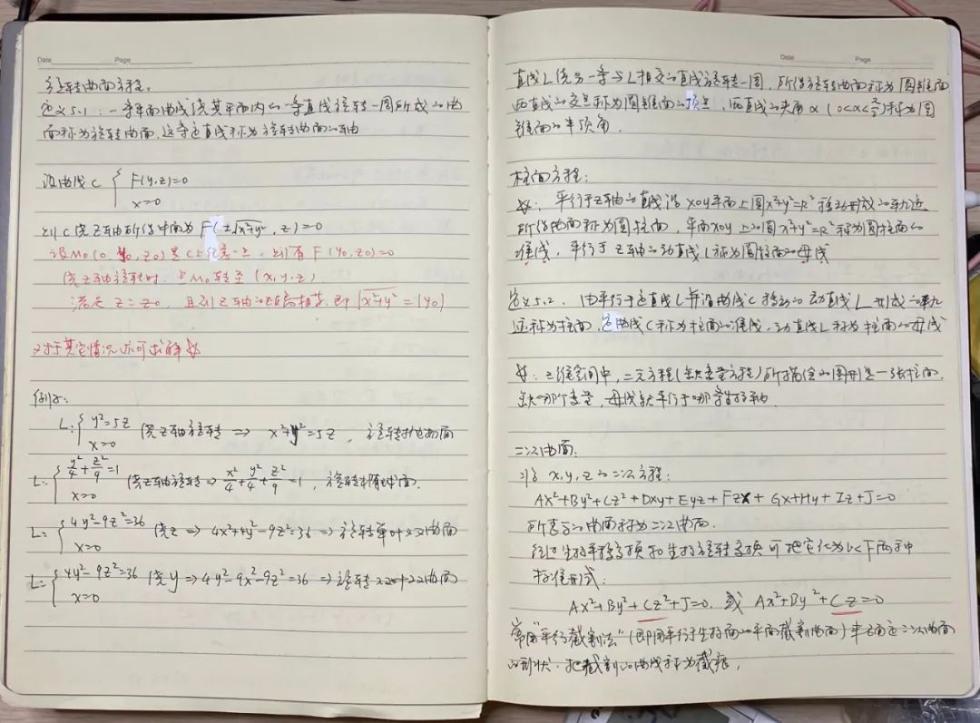 Date Page
旋转曲面方程。
定义5.1：一条平面曲线绕其平面内的一条直线旋转一周所成的曲
面称为旋转曲面，这条定直线称为旋转曲面的轴
设曲线C { F(y,z)=0
x=0
则C绕Z轴所得曲面为 F(±√x²+y², z)=0
设M₀(0, y₀, z₀)是C上任意一点，则有 F(y₀,z₀)=0
绕z轴旋转时，点M₀转至(x,y,z)
满足 z=z₀，且到z轴的距离相等，即√x²+y²=|y₀|
对于其它情况亦可求解
例如：
L: { y²=5z 绕z轴旋转 ⇒ x²+y²=5z，旋转抛物面
x=0
L: { y²/4+z²/9=1 绕z轴旋转 ⇒ x²/4+y²/4+z²/9=1，旋转椭球面。
x=0
L: { 4y²-9z²=36 绕z ⇒ 4x²+4y²-9z²=36 ⇒ 旋转单叶双曲面
x=0
L: { 4y²-9z²=36 绕y ⇒ 4y²-9x²-9z²=36 ⇒ 旋转双叶双曲面
x=0
Date Page
直线L绕另一条与L相交的直线旋转一周，所得旋转曲面称为圆锥面
两直线的交点称为圆锥面的顶点，两直线的夹角α(0<α<π/2)称为圆
锥面的半顶角.
柱面方程：
平行于z轴的直线沿xoy平面上圆x²+y²=R²移动形成的轨迹
所得曲面称为圆柱面，平面xoy上的圆x²+y²=R²称为圆柱面的
准线，平行于z轴的动直线l称为圆柱面的母线
定义5.2. 由平行于定直线L并沿曲线C移动的动直线L形成的轨
迹称为柱面，定曲线C称为柱面的准线，动直线L称为柱面的母线
三维空间中，二元方程(缺变量方程)所描绘的图形是一张柱面，
缺哪个变量，母线就平行于哪条坐标轴.
二次曲面.
x,y,z的二次方程：
Ax²+By²+Cz²+Dxy+Eyz+Fzx+Gx+Hy+Iz+J=0
所表示的曲面称为二次曲面.
经过坐标平移变换和坐标旋转变换可把它化为以下两种
标准形式：
Ax²+By²+Cz²+J=0. 或 Ax²+By²+Cz=0
常用"平行截割法"(即用平行于坐标面的平面截割曲面)来确定二次曲面
的形状.把截割的曲线称为截痕.